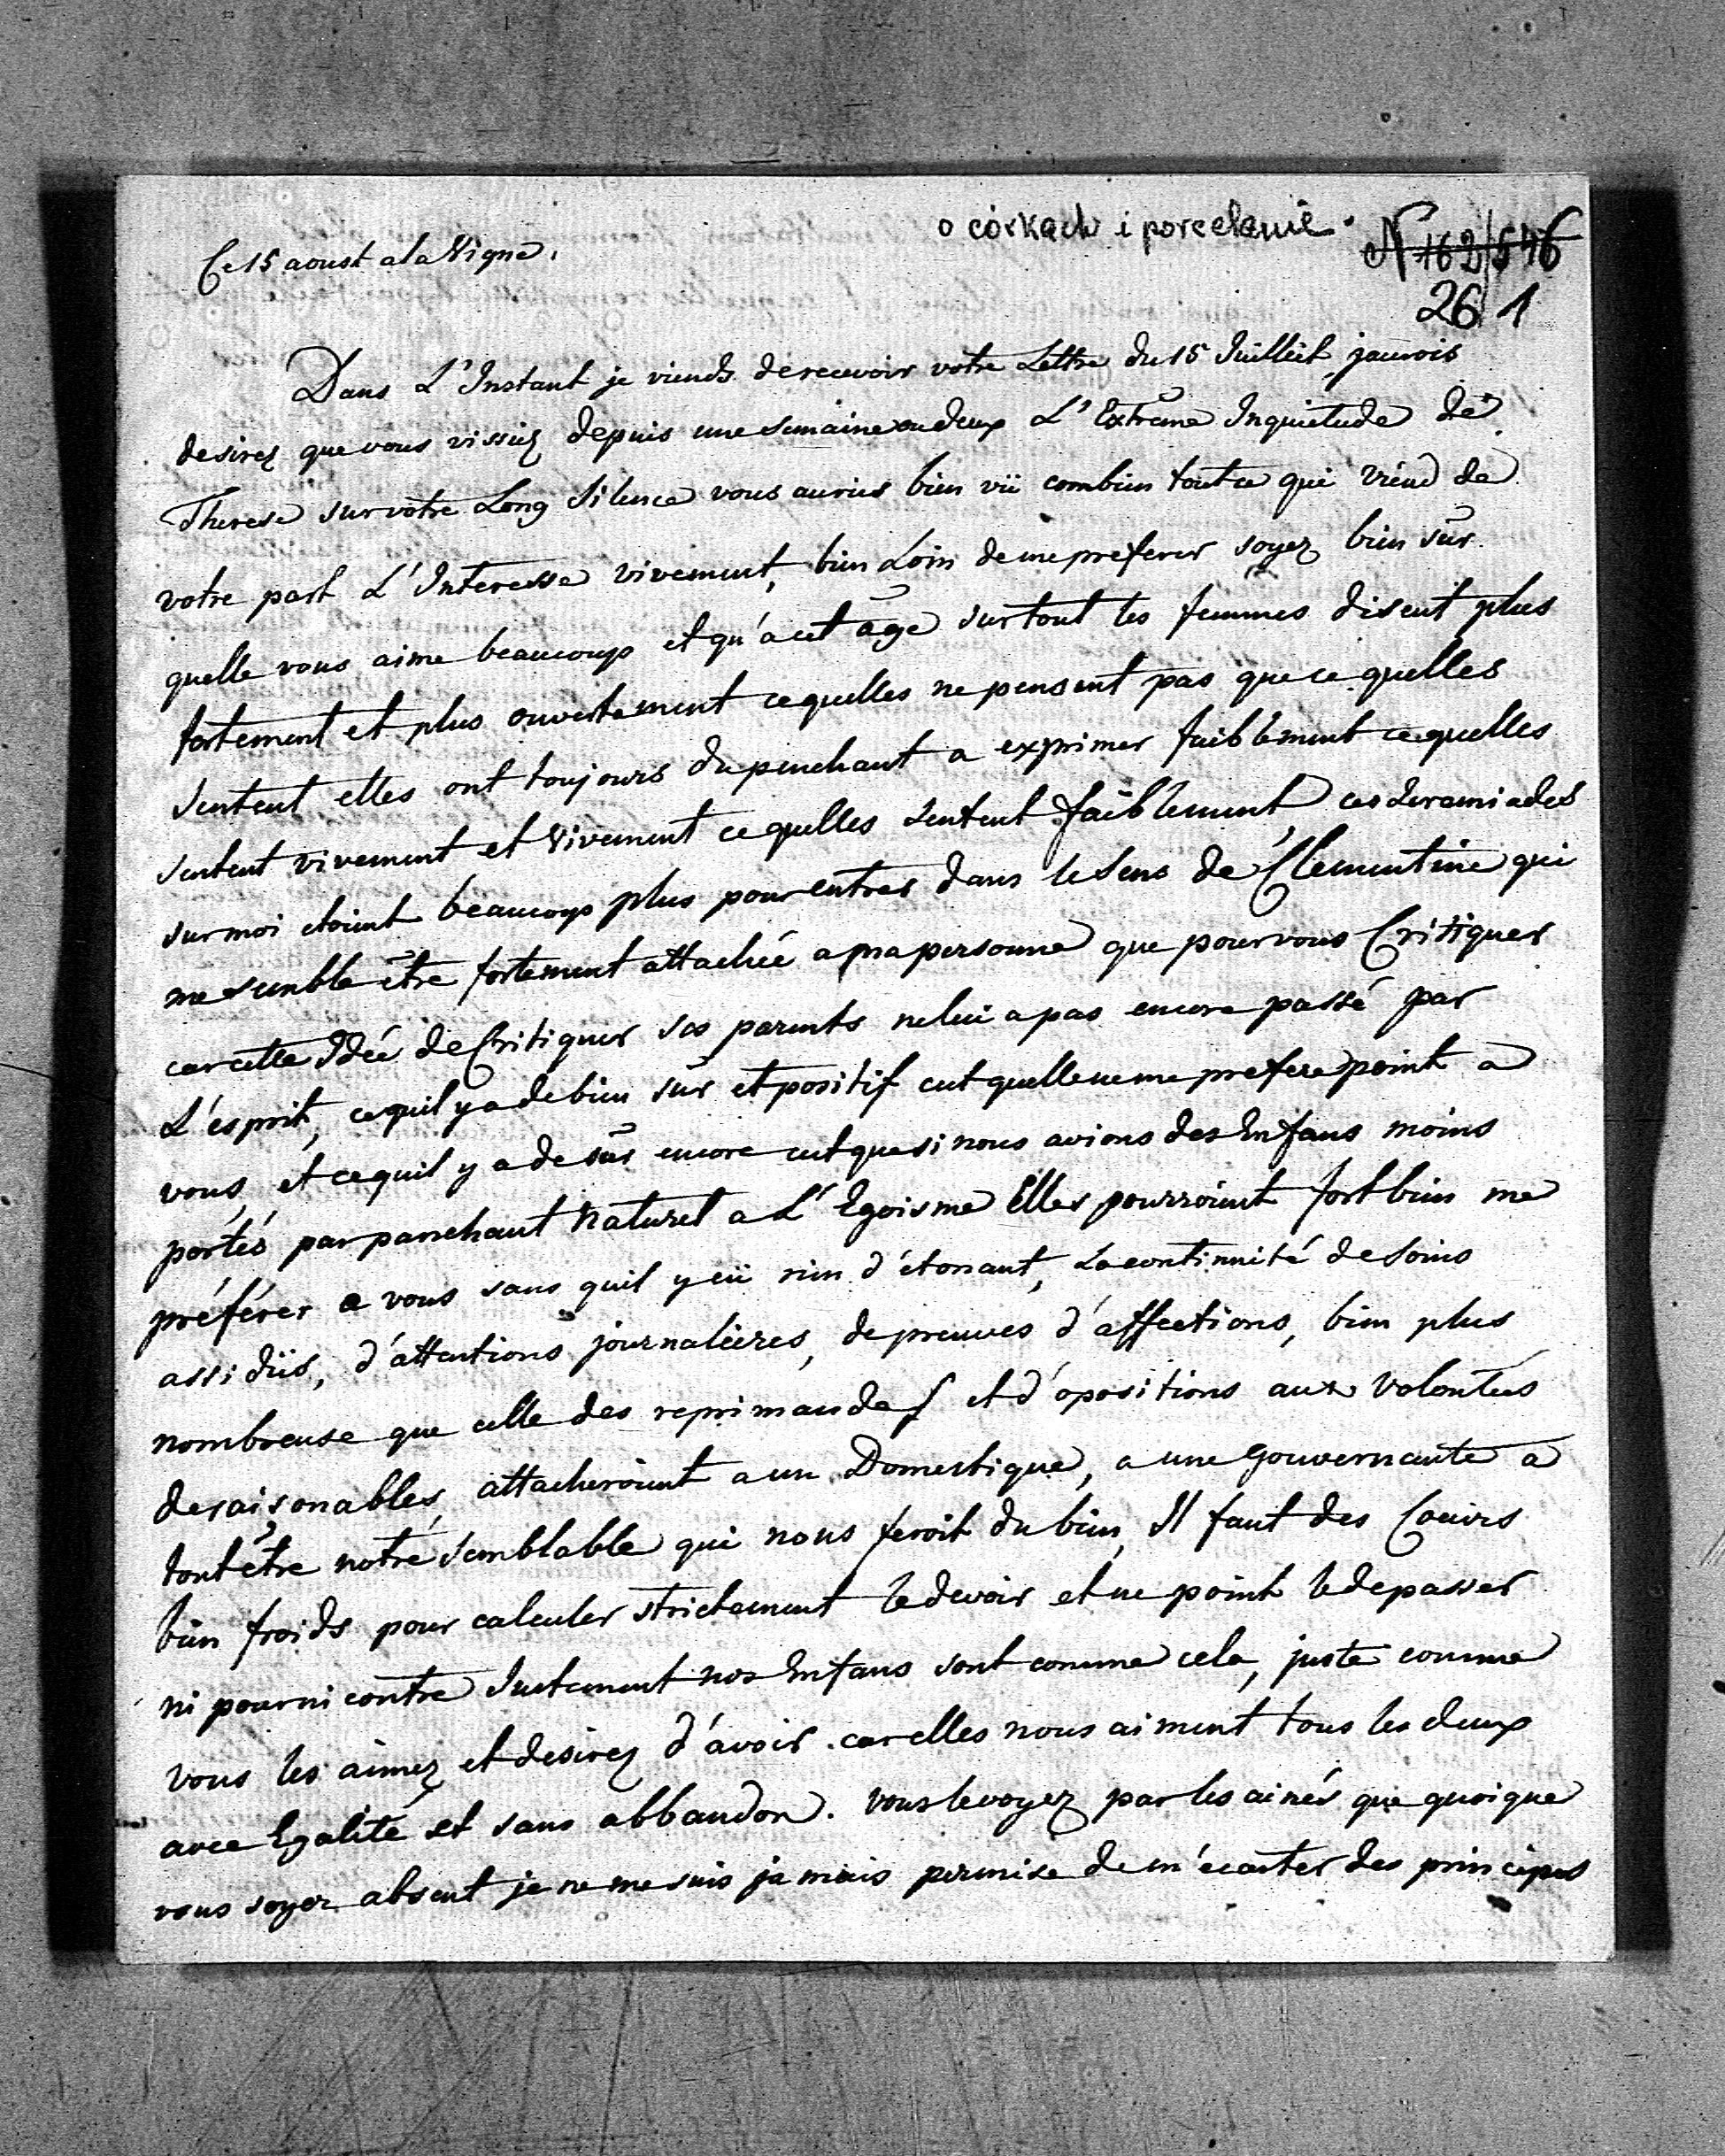 o córkach i porcelanie.
N 162/546
26/1
Ce 15 aoust a la Vigne.
Dans L'Instant je viends de recevoir votre Lettre du 15 Juillêt, jaurois
desirez que vous vissiez depuis une semaine ou deux L'Extrême Inquietude de
Therese sur votre Long Silence vous auries bien vü combien tout ce qui viend de
votre part L'Interesse vivement, bien Loin de me preferer soyez bien sûr
quelle vous aime beaucoup et qu'a cet âge surtout les femmes disent plus
fortement et plus ouvertement ce quelles ne pensent pas que ce quelles
sentent elles ont toujours du penchant a exprimer faiblement ce quelles
sentent vivement et Vivement ce quelles sentent faiblement, ces Jeremiades
sur moi etoient beaucoup plus pour entrer dans le sens de Clementine qui
me semble être fortement attachée a ma personne que pour vous Critiquer
car cette Idée de Critiquer ses parents ne lui a pas encore passé par
L'esprit, ce quil y a de bien sûr et positif cet quelle ne me prefere point a
vous, et ce quil y a de sûr encore cet que si nous avions des Enfans moins
portés par panchant Naturel a L'Egoisme Elles pourroient fort bien me
préférer a vous sans quil y eü rien d'étonant, La continuité de soins
assidüs, d'attentions journalieres, de preuves d'affections, bien plus
nombreuse que celle des reprimandes et d'opositions aux volontées
desaisonables, attacheroient a un Domestique, a une gouvernante a
tout être notre semblable qui nous feroit du bien, Il faut des Coeurs
bien froids pour calculer strictement le devoir et ne point le depasser
ni pour ni contre Justement nos Enfans sont comme cela, juste comme
vous les aimez et desirez d'avoir. car elles nous aiment tous les deux
avec Egalité et sans abbandon. vous le voyez par les ainés que quoique
vous soyez absent je ne me suis jamais permise de m'ecarter des principes